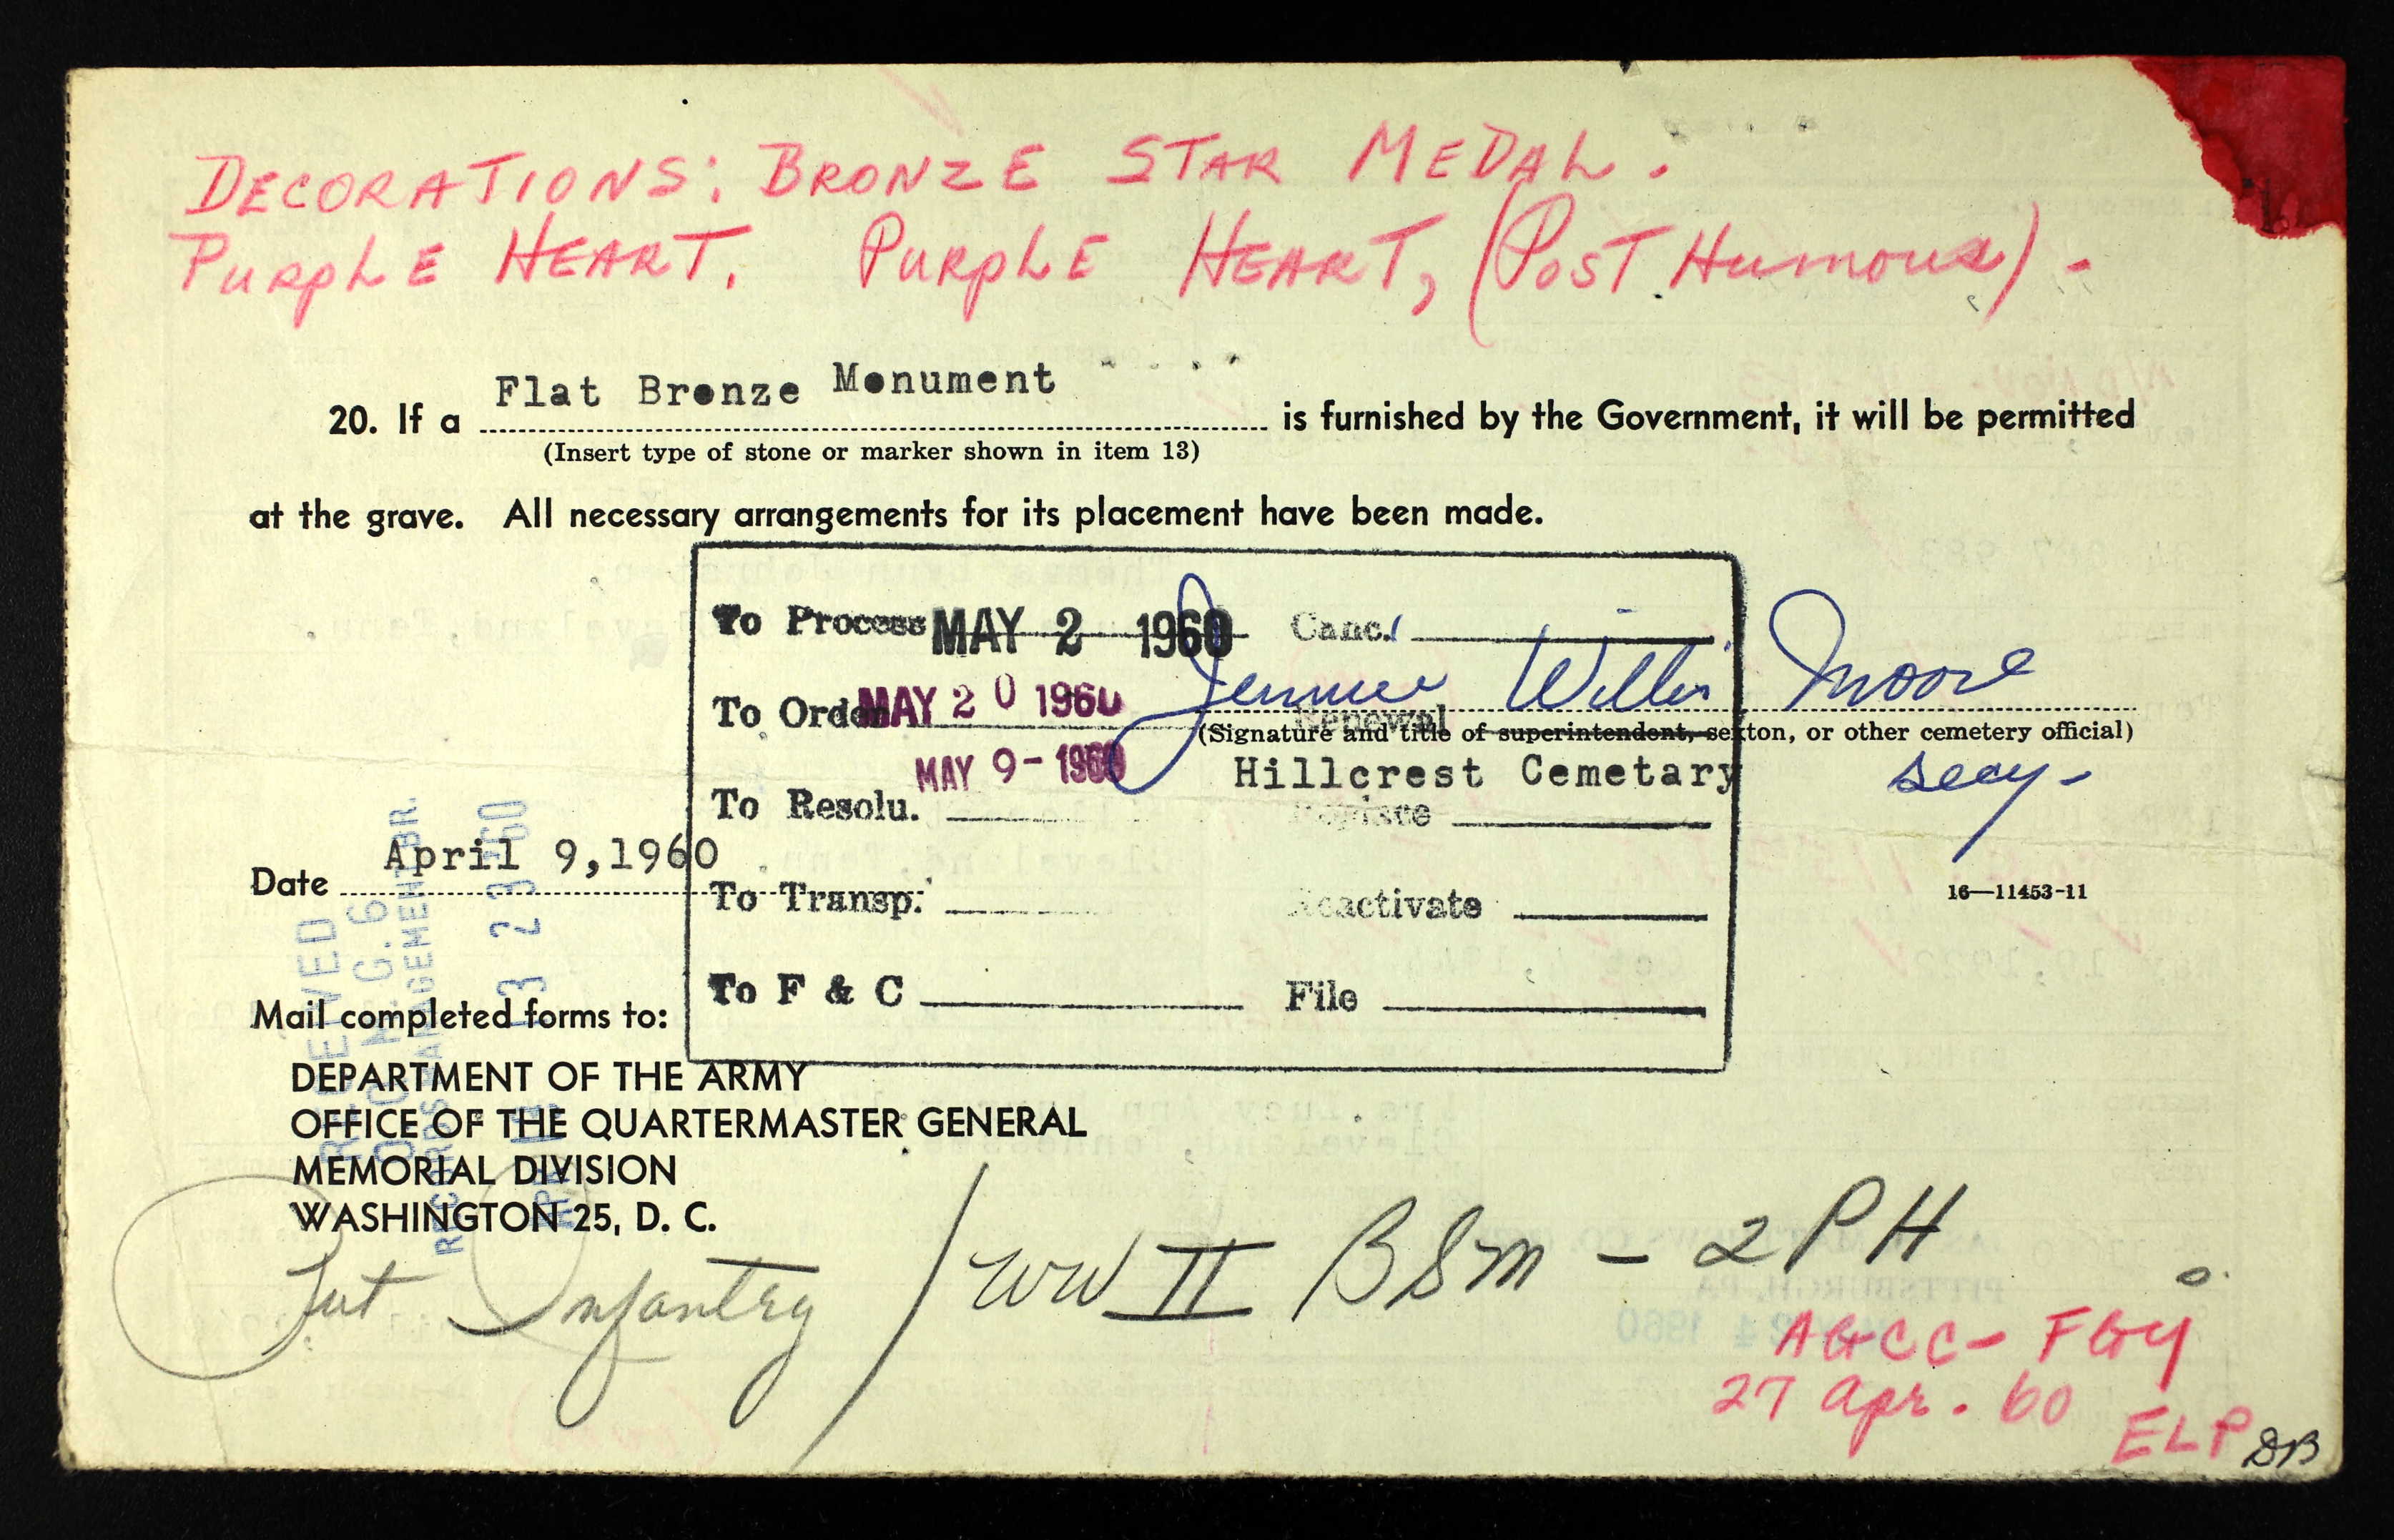 DECORATIONS: BRONZE STAR MEDAL.
PURPLE HEART. PURPLE HEART, (POST HUMOUS).
20. If a Flat Bronze Monument is furnished by the Government, it will be permitted
(Insert type of stone or marker shown in item 13)
at the grave. All necessary arrangements for its placement have been made.
To Process MAY 2 1960 Canc.
Jennie Willis Moore
To Order MAY 20 1960 Renewal
(Signature and title of superintendent, sexton, or other cemetery official)
MAY 9-1960
Hillcrest Cemetary secy-
To Resolu. Replace
Date April 9,1960
To Transp. Reactivate
16—11453-11
To F & C File
RECEIVED
O Q M G. 6
RECORDS MANAGEMENT BR.
APR 13 23 '60
Mail completed forms to:
DEPARTMENT OF THE ARMY
OFFICE OF THE QUARTERMASTER GENERAL
MEMORIAL DIVISION
WASHINGTON 25, D. C.
Infantry / WW II BSM - 2 PH
AGCC- FGY
27 Apr. 60
ELP DB